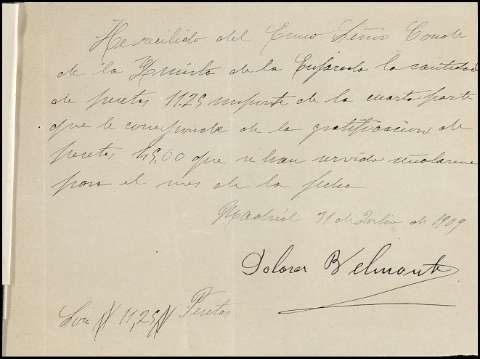 He recibido del Excmo Señor Conde
de la Quinta de la Enjarada la cantidad
de pesetas 11.25 importe de la cuarta parte
que le corresponde de la gratificacion de
pesetas 45,00 que se han servido señalarme
para el mes de la fecha
Madrid 31 de Julio de 1909
Dolores Belmonte
Son 11,25 Pesetas